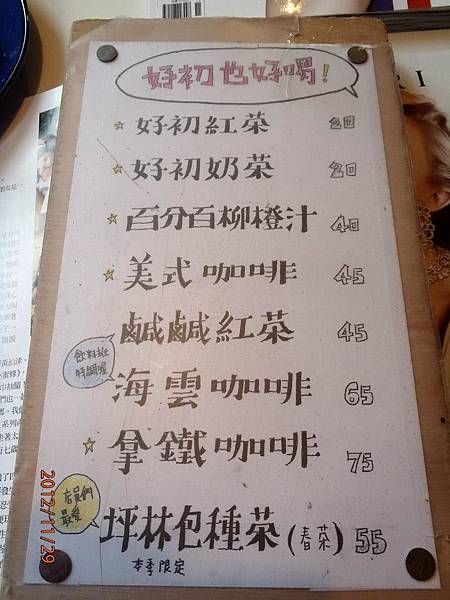 好初也好喝!
☆ 好初紅茶 20
☆ 好初奶茶 20
☆ 百分百柳橙汁 40
☆ 美式咖啡 45
鹹鹹紅茶 45
飲料班
特調喔
海雲咖啡 65
☆ 拿鐵咖啡 75
店員們
最愛
坪林包種茶(春茶) 55
本季限定
2012/11/29